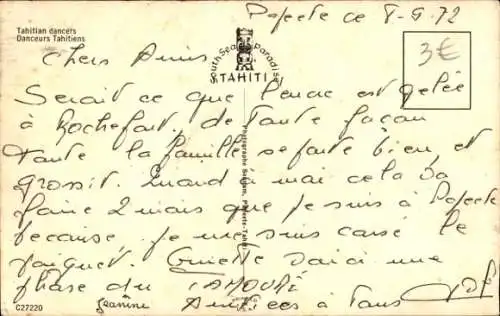 Tahitian dancers
Danceurs Tahitiens
South Seas Paradise
TAHITI
Papeete ce 8-9-72
3€
Chers Amis
Serait ce que l'encre est gelée
à Rochefort. de Toute façon
Toute la famille se porte bien et
grossit. Quand à moi cela va
faire 2 mois que je suis à Papeete
je me suis cassé le
poignet. Ginette voici une
phase du TAMOURÉ
Jeanine Amitiés à Tous
C27220